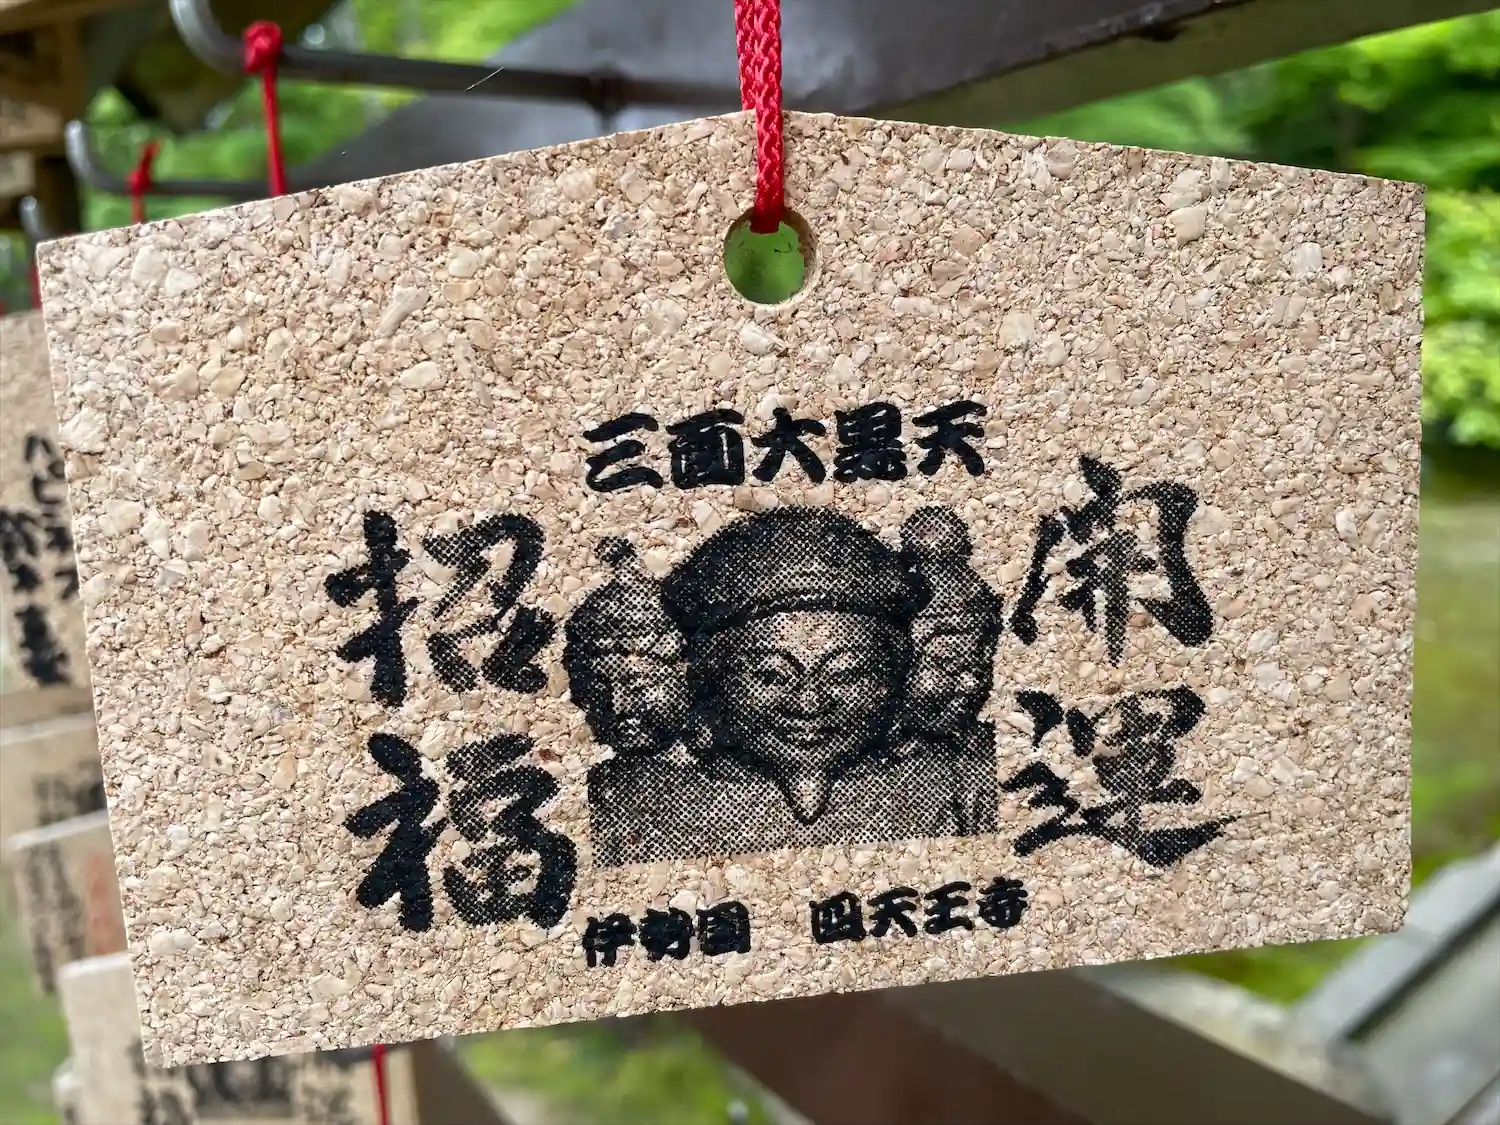 三面大黒天
開運
招福
伊勢国 四天王寺